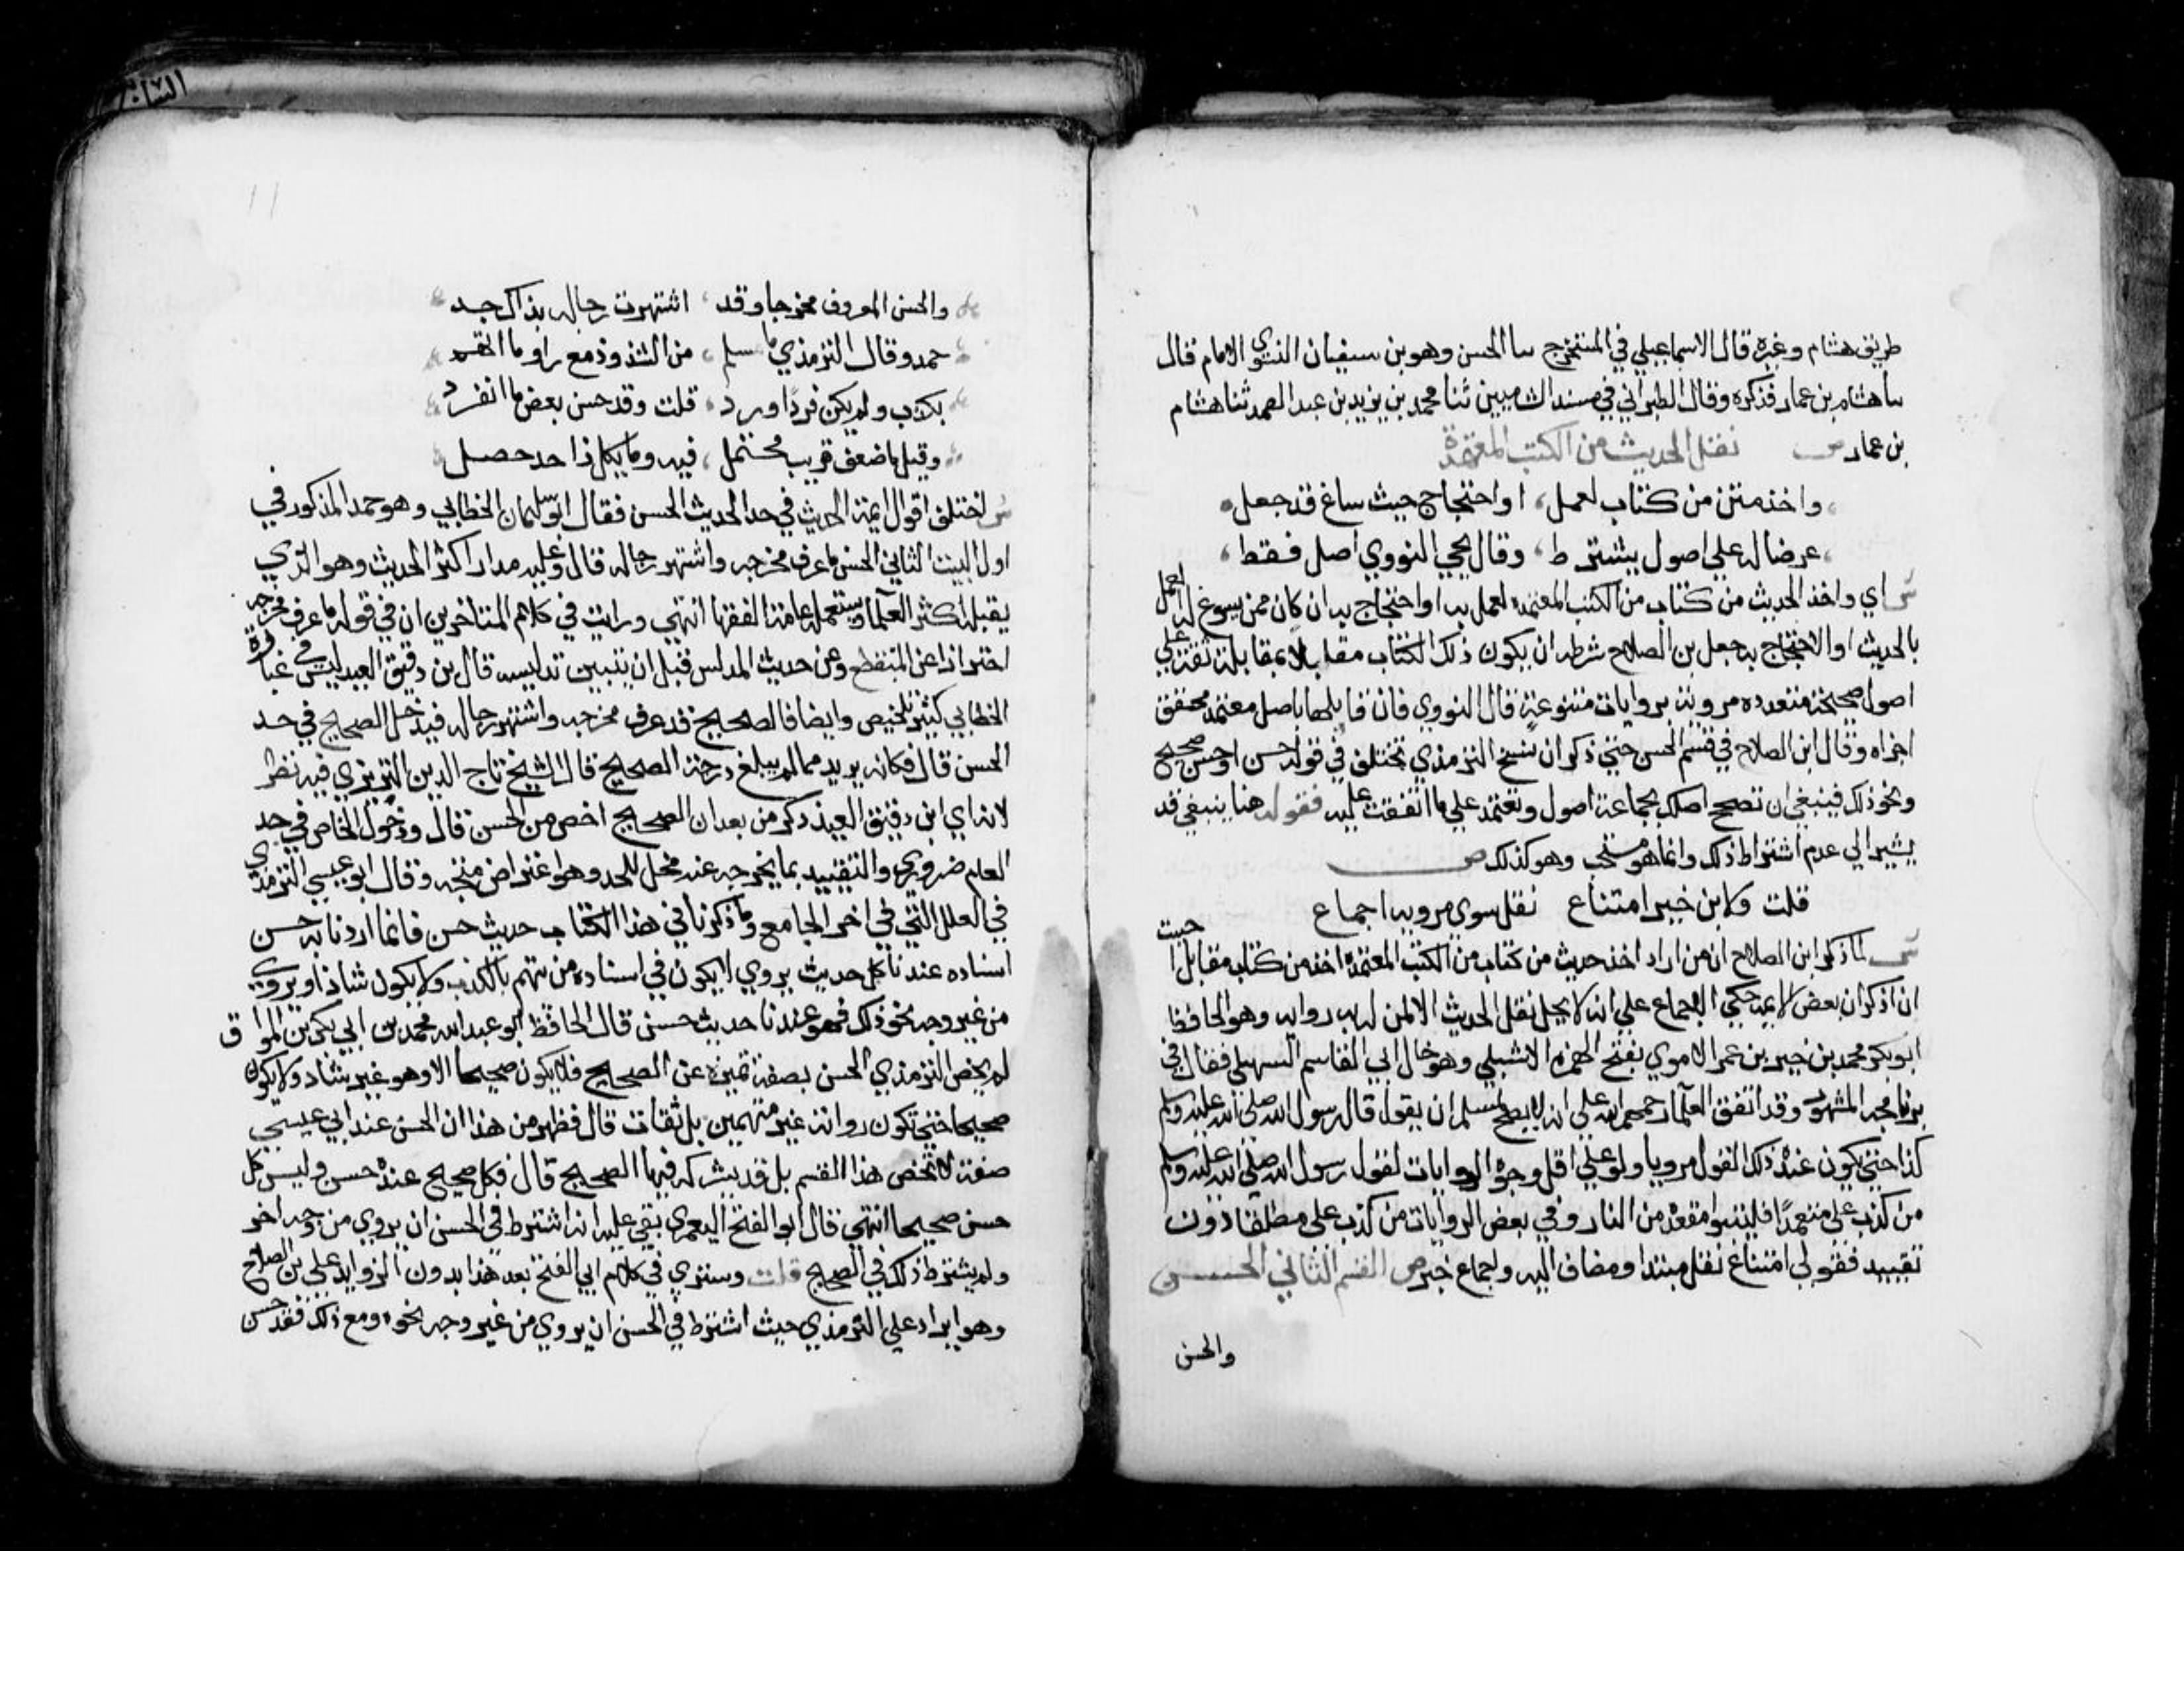 طريق هشام وغيره قال الاسماعيلي في المستخرج سا الحسن وهو بن سفيان النسوي الامام قال
سا هشام بن عمار فذكره وقال الطبراني في مسند الشاميين ثنا محمد بن يزيد بن عبد الصمد ثنا هشام
بن عمار ص نقل الحديث من الكتب المعتمدة
واخذ متن من كتاب لعمل او احتجاج حيث ساغ قد جعل
عرضا له على اصول يشترط وقال يحي النووي اصل فقط
ش اي واخذ الحديث من كتاب من الكتب المعتمده لعمل به او احتجاج به ان كان ممن يسوغ له العمل
بالحديث او الاحتجاج به جعل بن الصلاح شرطه ان يكون ذلك الكتاب مقابلا بمقابلة ثقة علي
اصول صحيحة متعدده مروية بروايات متنوعة قال النووي فان قابلها باصل معتمد محقق
اجزاه وقال ابن الصلاح في قسم الحسن حين ذكر ان نسخ الترمذي تختلف في قوله حسن او حسن صحيح
ونحو ذلك فينبغي ان تصحح اصلك بجماعة اصول وتعتمد علي ما اتفقت عليه فقوله هنا ينبغي قد
يشير الي عدم اشتراط ذلك وانما هو مستحب وهو كذلك ص
قلت ولابن خير امتناع نقل سوى مرويه اجماع
ش لما ذكر ابن الصلاح ان من اراد اخذ حديث من كتاب من الكتب المعتمدة اخذه من كتاب مقابل احببت
ان اذكر ان بعض الايمة حكي الاجماع علي انه لا يحل نقل الحديث الا لمن له به رواية وهو الحافظ
ابو بكر محمد بن خير بن عمر الاموي بفتح الهمزه الاشبيلي وهو خال ابي القاسم السهيلي فقال في
برنامجه المشهور وقد اتفق العلما رحمهم الله علي انه لا يصح لمسلم ان يقول قال رسول الله صلي الله عليه وسلم
كذا حتى يكون عنده ذلك القول مرويا ولو علي اقل وجوه الروايات لقول رسول الله صلي الله عليه وسلم
من كذب علي متعمدا فليتبوا مقعده من النار وفي بعض الروايات من كذب علي مطلقا دون
تقييد فقولي امتناع نقل مبتدا ومضاف اليه واجماع خبر ص القسم الثاني الحسن
والحسن
١١
والحسن المعروف مخرجا وقد اشتهرت رجاله بذاك حد
حمد وقال الترمذي ما سلم من الشذوذ مع راو ما اتهم
بكذب ولم يكن فردا ورد قلت وقد حسن بعض ما انفرد
وقيل ما ضعف قريب محتمل فيه وما بكل ذا حد حصل
ش اختلف اقوال ايمة الحديث في حد الحديث الحسن فقال ابو سليمان الخطابي وهو حمد المذكور في
اول البيت الثاني الحسن ما عرف مخرجه واشتهر رجاله قال وعليه مدار اكثر الحديث وهو الذي
يقبله اكثر العلما ويستعمله عامة الفقها انتهي ورايت في كلام المتاخرين ان في قوله ما عرف مخرجه
احترازا عن المنقطع وعن حديث المدلس قبل ان يتبين تدليسه قال بن دقيق العيد ليس في عبارة
الخطابي كثير تلخيص وايضا فالصحيح قد عرف مخرجه واشتهر رجاله فيدخل الصحيح في حد
الحسن قال فكانه يريد مما لم يبلغ درجة الصحيح قال الشيخ تاج الدين التبريزي فيه نظر
لانه اي ابن دقيق العيد ذكر من بعد ان الصحيح اخص من الحسن قال ودخول الخاص في حد
العام ضروري والتقييد بما يخرجه عنه مخل للحد وهو اعتراض متجه وقال ابو عيسي الترمذي
في العلل التي في اخر الجامع وما ذكرنا في هذا الكتاب حديث حسن فانما اردنا به حسن
اسناده عندنا كل حديث يروي لا يكون في اسناده من يتهم بالكذب ولا يكون شاذا ويروي
من غير وجه نحو ذلك فهو عندنا حديث حسن قال الحافظ ابو عبد الله محمد بن ابي بكر بن المواق
لم يخص الترمذي الحسن بصفة تميزه عن الصحيح فلا يكون صحيحا الا وهو غير شاذ ولا يكون
صحيحا حتي تكون رواته غير متهمين بل ثقات قال فظهر من هذا ان الحسن عند ابي عيسي
صفة لا تخص هذا القسم بل قد يشركه فيها الصحيح قال فكل صحيح عنده حسن وليس كل
حسن صحيحا انتهي قال ابو الفتح اليعمري بقي عليه انه اشترط في الحسن ان يروي من وجه اخر
ولم يشترط ذلك في الصحيح قلت وستري في كلام ابي الفتح بعد هذا بدون الزوايد علي بن الصلاح
وهو ايراد علي الترمذي حيث اشترط في الحسن ان يروي من غير وجه نحوه ومع ذلك فقد حسن